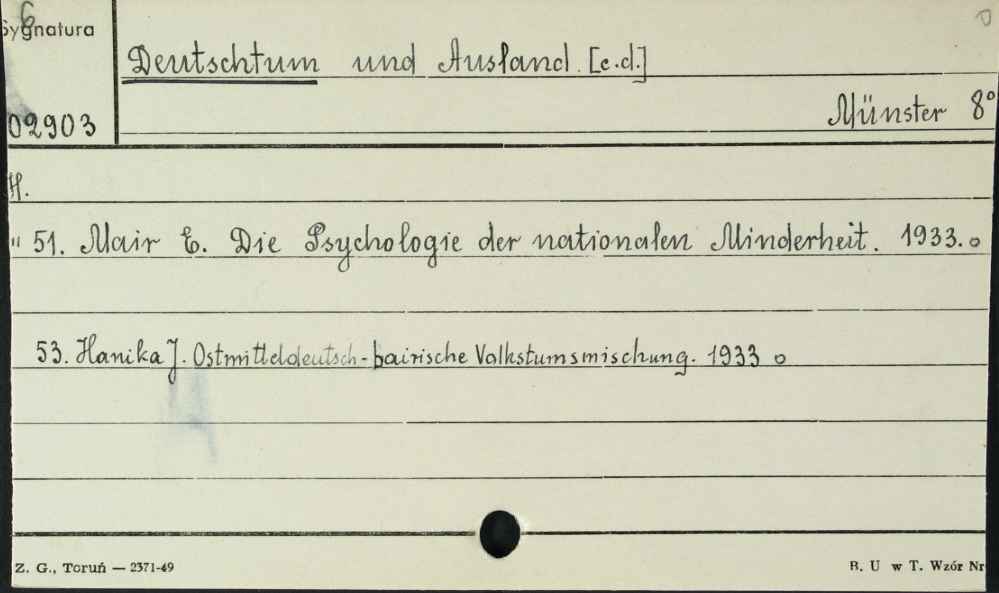 6
Sygnatura
Deutschtum und Ausland. [c.d.]
02903
Münster 8°
H.
" 51. Mair E. Die Psychologie der nationalen Minderheit. 1933. o
53. Hanika J. Ostmitteldeutsch-bairische Volkstumsmischung. 1933 o
Z. G., Toruń — 2371-49
B. U w T. Wzór Nr